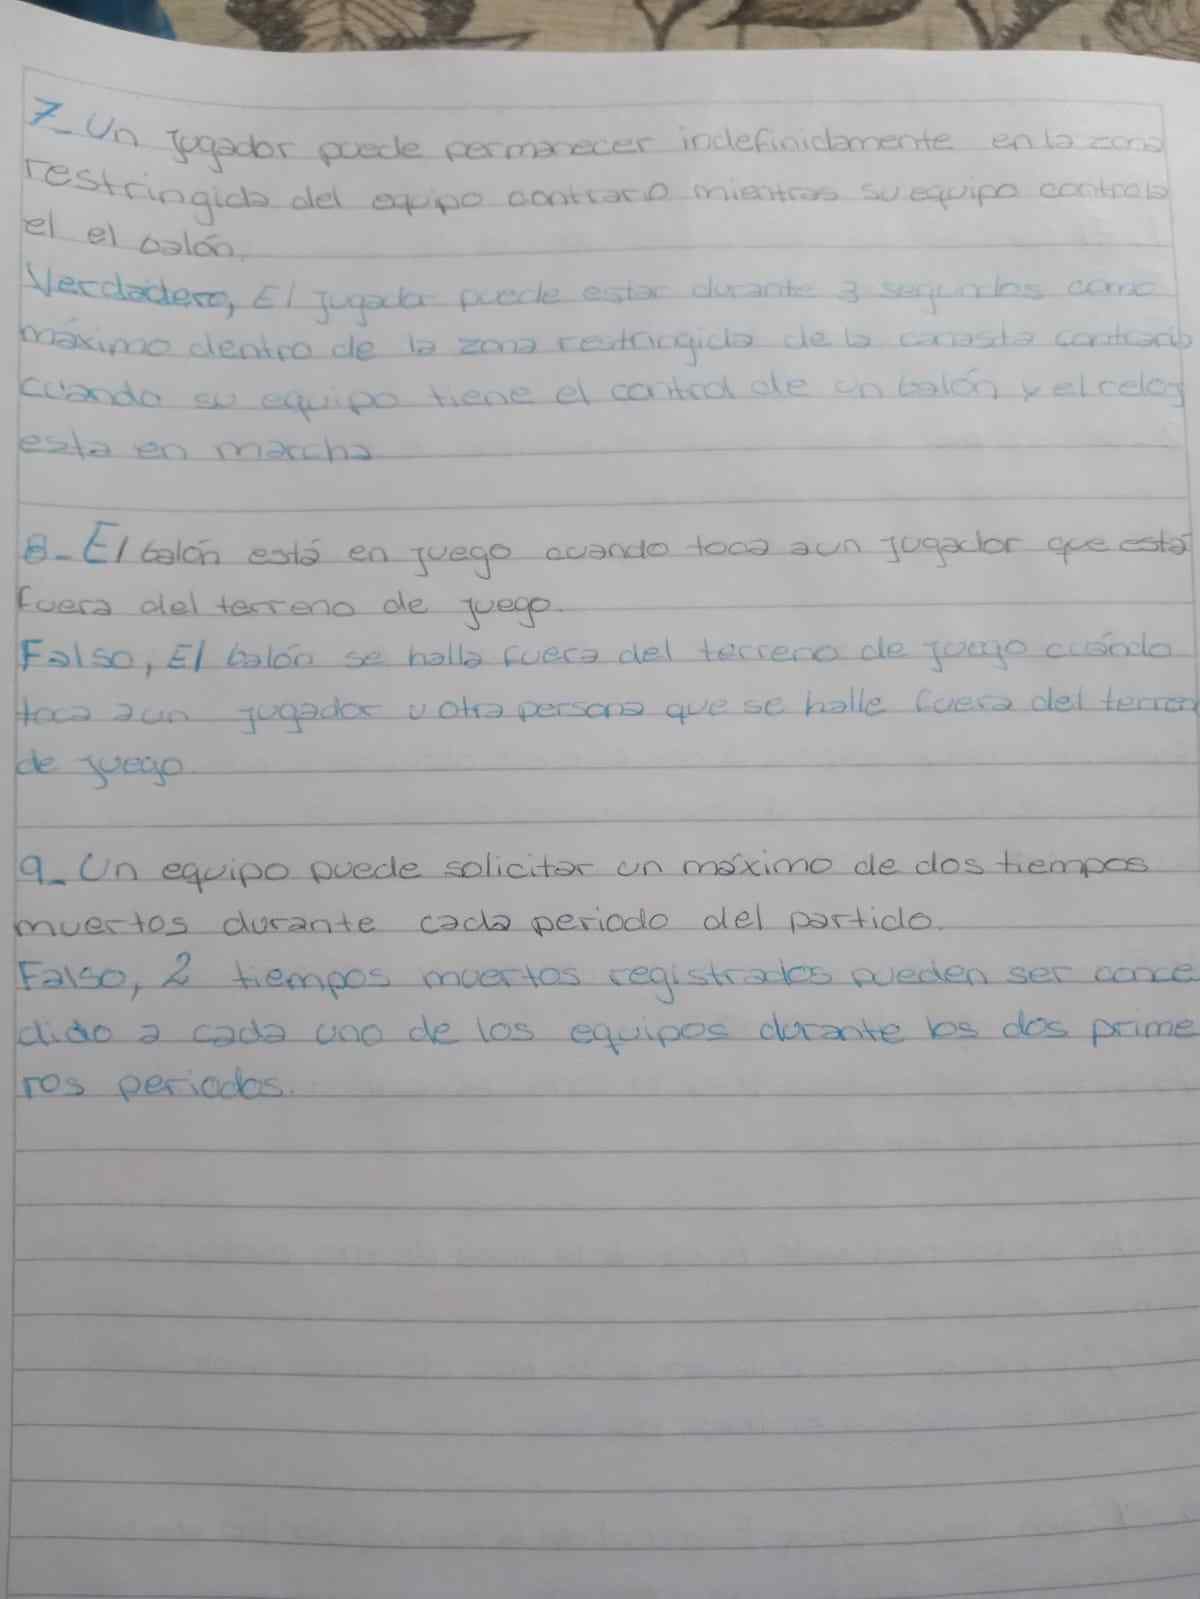 7_ Un jugador puede permanecer indefinidamente en la zona
restringida del equipo contraro mientras su equipo controla
el el balón.
Verdadero, El jugador puede estar durante 3 segundos como
máximo dentro de la zona restringida de la canasta contraria
cuando su equipo tiene el control de un balón y el celog
esta en marcha
8_ El balón está en juego cuando toca a un jugador que está
fuera del terreno de juego.
Falso, El balón se halla fuera del terreno de juego cuándo
toca a un jugador u otra persona que se halle fuera del terreno
de juego
9_ Un equipo puede solicitar un máximo de dos tiempos
muertos durante cada periodo del partido.
Falso, 2 tiempos muertos registrados pueden ser conce
dido a cada uno de los equipos durante los dos prime
ros periodos.